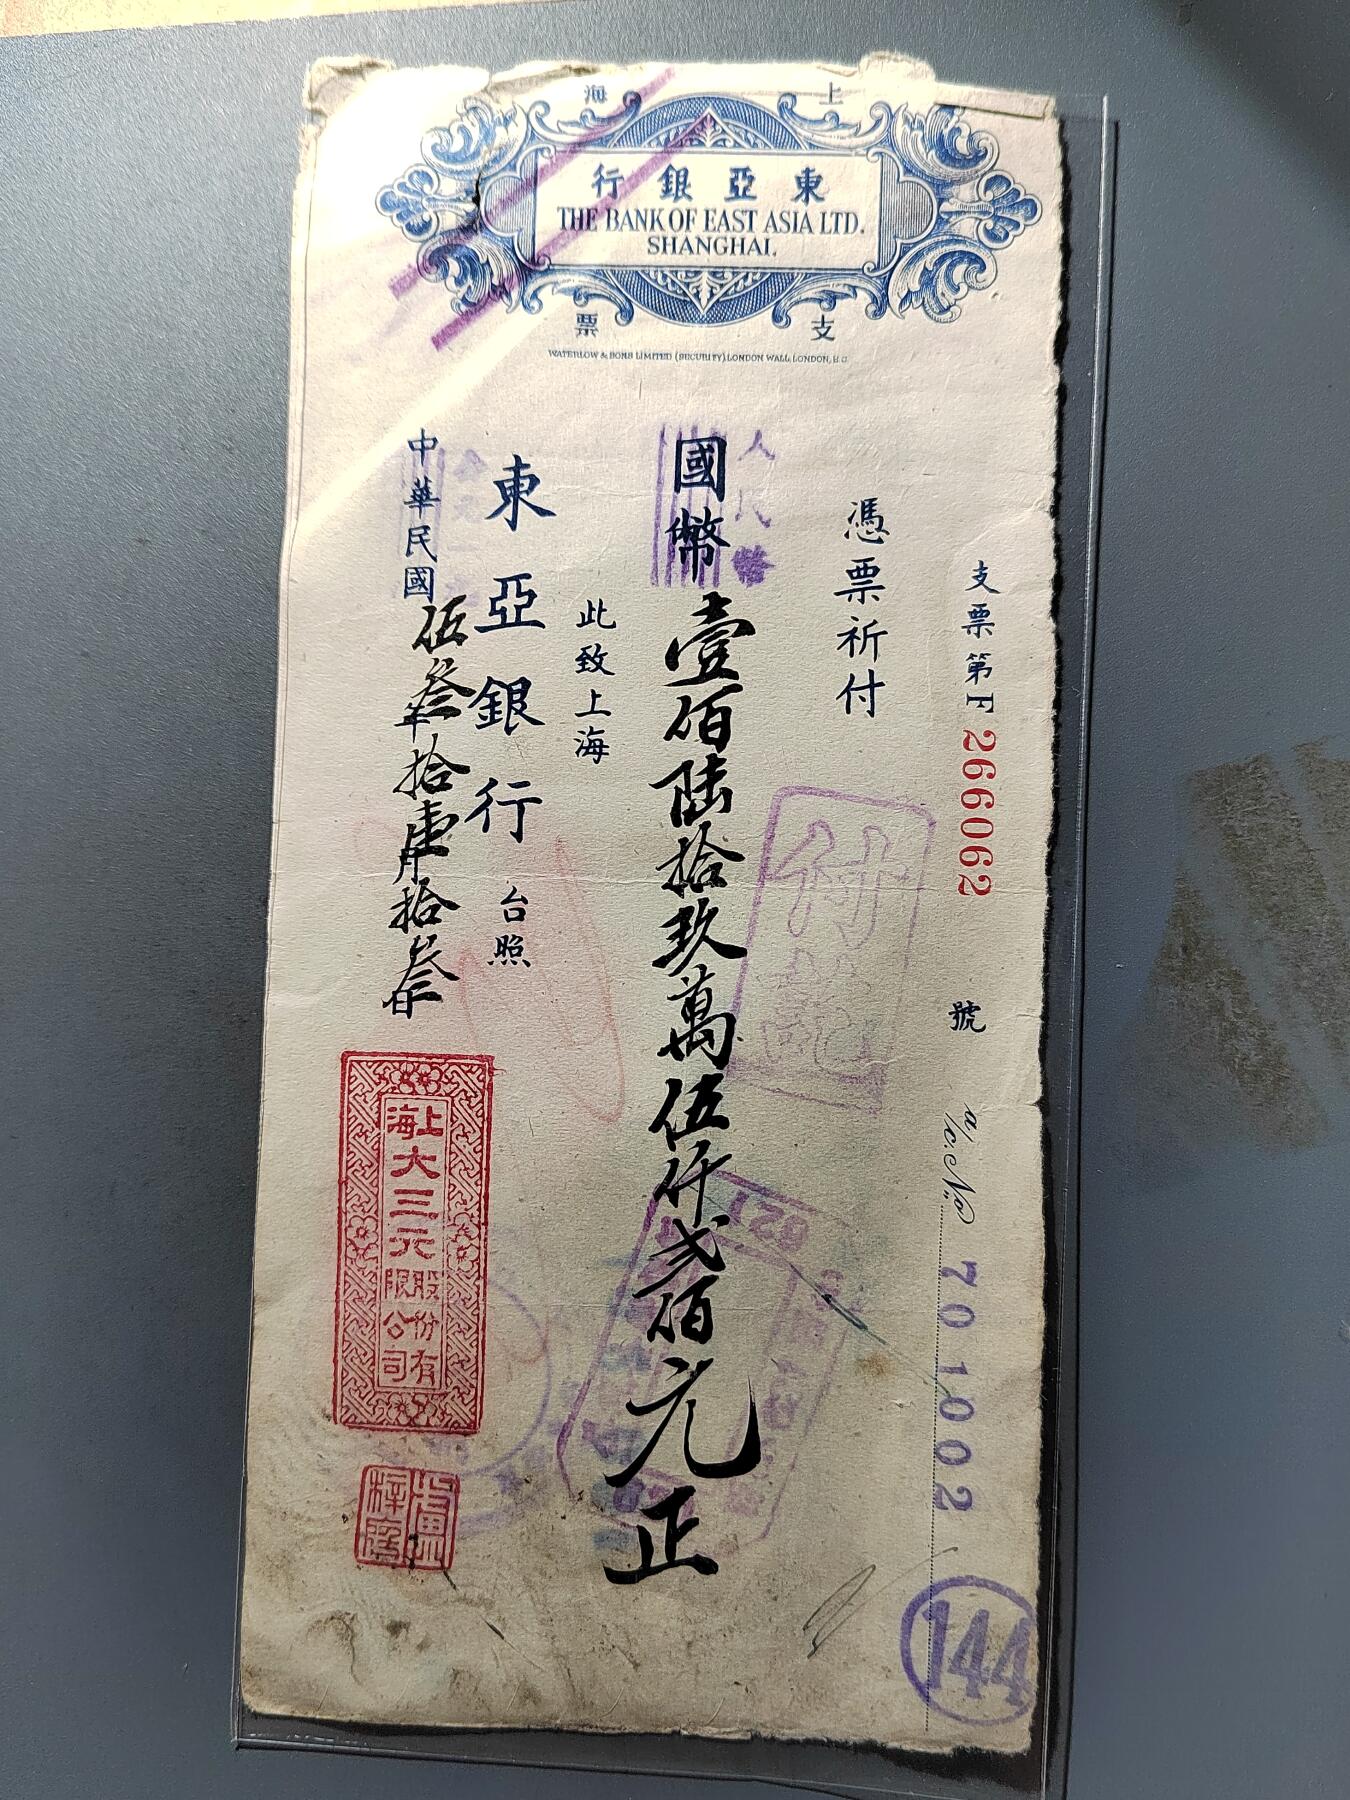 上海
東亞銀行
THE BANK OF EAST ASIA LTD.
SHANGHAI.
支票
WATERLOW & SONS LIMITED (SECURITY) LONDON WALL, LONDON, E.C.
支票第F 266062 號
a/c. No 701002
144
憑票祈付
付訖
人民幣
國幣壹佰陸拾玖萬伍仟弍佰元正
此致上海
東亞銀行台照
中華民國伍叁年拾壹月拾叁日
上海大三元股份有限公司